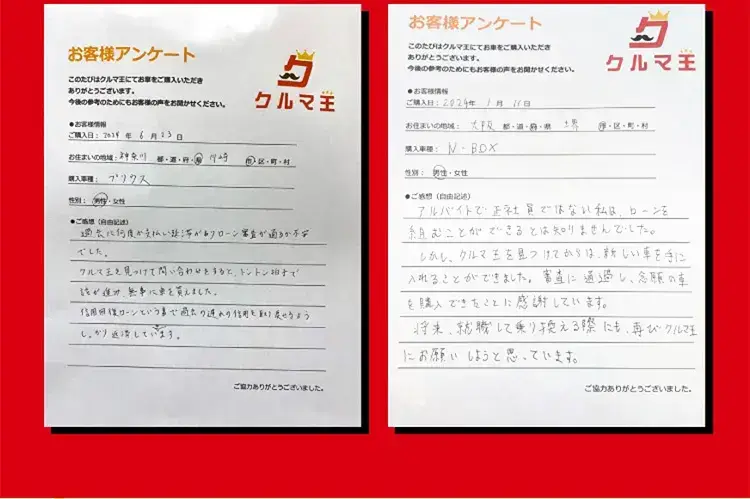 お客様アンケート
クルマ王
このたびはクルマ王にてお車をご購入いただき
ありがとうございます。
今後の参考のためにもお客様の声をお聞かせください。
●お客様情報
ご購入日：2024年 6月23日
お住まいの地域：神奈川 都・道・府・県 川崎 市・区・町・村
購入車種：プリウス
性別：男性・女性
●ご感想（自由記述）
過去に何度か支払い延滞がありローン審査が通るか不安
でした。
クルマ王を見つけて問い合わせをすると、トントン拍子で
話が進み、無事に車を買えました。
信用回復ローンという事で過去の遅れの信用を取り戻せるよう
しっかり返済しています。
ご協力ありがとうございました。
お客様アンケート
クルマ王
このたびはクルマ王にてお車をご購入いただき
ありがとうございます。
今後の参考のためにもお客様の声をお聞かせください。
●お客様情報
ご購入日：2024年 1月 11日
お住まいの地域：大阪 都・道・府・県 堺 市・区・町・村
購入車種：N-BOX
性別：男性・女性
●ご感想（自由記述）
アルバイトで正社員ではない私は、ローンを
組むことができるとは知りませんでした。
しかし、クルマ王を見つけてからは、新しい車を手に
入れることができました。審査に通過し、念願の車
を購入できたことに感謝しています。
将来、就職して乗り換える際にも、再びクルマ王
にお願いしようと思っています。
ご協力ありがとうございました。